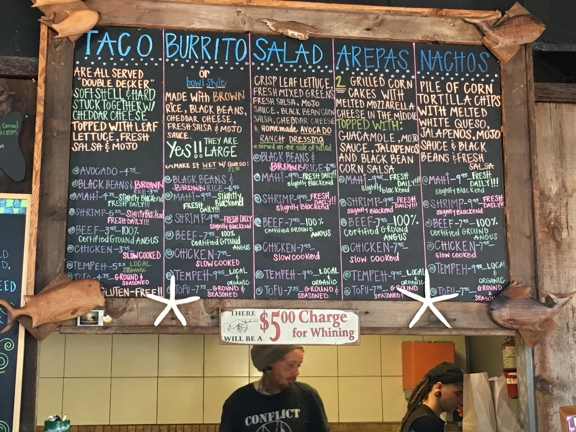 TACO
ARE ALL SERVED
"DOUBLE DECKER"
SOFT SHELL & HARD
STUCK TOGETHER W/
CHEDDAR CHEESE
TOPPED WITH LEAF
LETTUCE, FRESH
SALSA & MOJO
AVOCADO
BLACK BEANS & BROWN
RICE
MAHI
slightly
Blackened
FRESH
DAILY!!!
SHRIMP
FRESH DAILY!!!
BEEF 100%
Certified Ground ANGUS
CHICKEN
SLOW COOKED
TEMPEH LOCAL
ORGANIC
TOFU GROUND &
SEASONED
GLUTEN-FREE!!
BURRITO
or
bowl style
MADE WITH BROWN
RICE, BLACK BEANS,
CHEDDAR CHEESE,
FRESH SALSA & MOJO
SAUCE.
YES!! THEY ARE
LARGE
MAKE IT WET W/ QUESO
BLACK BEANS
& BROWN RICE
MAHI FRESH
DAILY!!!
slightly Blackened
SHRIMP FRESH DAILY!!!
slightly Blackened
BEEF 100%
certified GROUND
ANGUS
CHICKEN
SLOW COOKED
TEMPEH LOCAL
ORGANIC
TOFU GROUND &
SEASONED
SALAD
CRISP LEAF LETTUCE,
FRESH MIXED GREENS
FRESH SALSA, MOJO
SAUCE, BLACK BEAN CORN
SALSA, CHEDDAR CHEESE
& HOMEMADE AVOCADO
RANCH DRESSING
served on the side of salad
BLACK BEANS &
BROWN RICE
MAHI FRESH
DAILY!!!
slightly Blackened
SHRIMP FRESH
DAILY!!!
slightly Blackened
BEEF 100%
certified GROUND
ANGUS
CHICKEN
slow cooked
TEMPEH LOCAL
ORGANIC
TOFU GROUND &
SEASONED
AREPAS
2 GRILLED CORN
CAKES WITH
MELTED MOZZARELLA
CHEESE IN THE MIDDLE
TOPPED WITH:
GUACAMOLE, MOJO
SAUCE, JALAPENOS
AND BLACK BEAN
CORN SALSA
MAHI FRESH
DAILY!!!
slightly Blackened
SHRIMP FRESH
DAILY!!!
slightly Blackened
BEEF 100%
CERTIFIED GROUND
ANGUS
CHICKEN
slow cooked
TEMPEH LOCAL
ORGANIC
TOFU GROUND &
SEASONED
NACHOS
PILE OF CORN
TORTILLA CHIPS
WITH MELTED
WHITE QUESO,
JALAPENOS, MOJO
SAUCE & BLACK
BEANS & FRESH
SALSA
MAHI FRESH
DAILY!!!
slightly Blackened
SHRIMP FRESH
DAILY!!!
slightly Blackened
BEEF 100%
certified GROUND
ANGUS
CHICKEN
slow cooked
TEMPEH LOCAL
ORGANIC
TOFU GROUND &
SEASONED
THERE
WILL BE A
$5.00 Charge
for Whining
CONFLICT